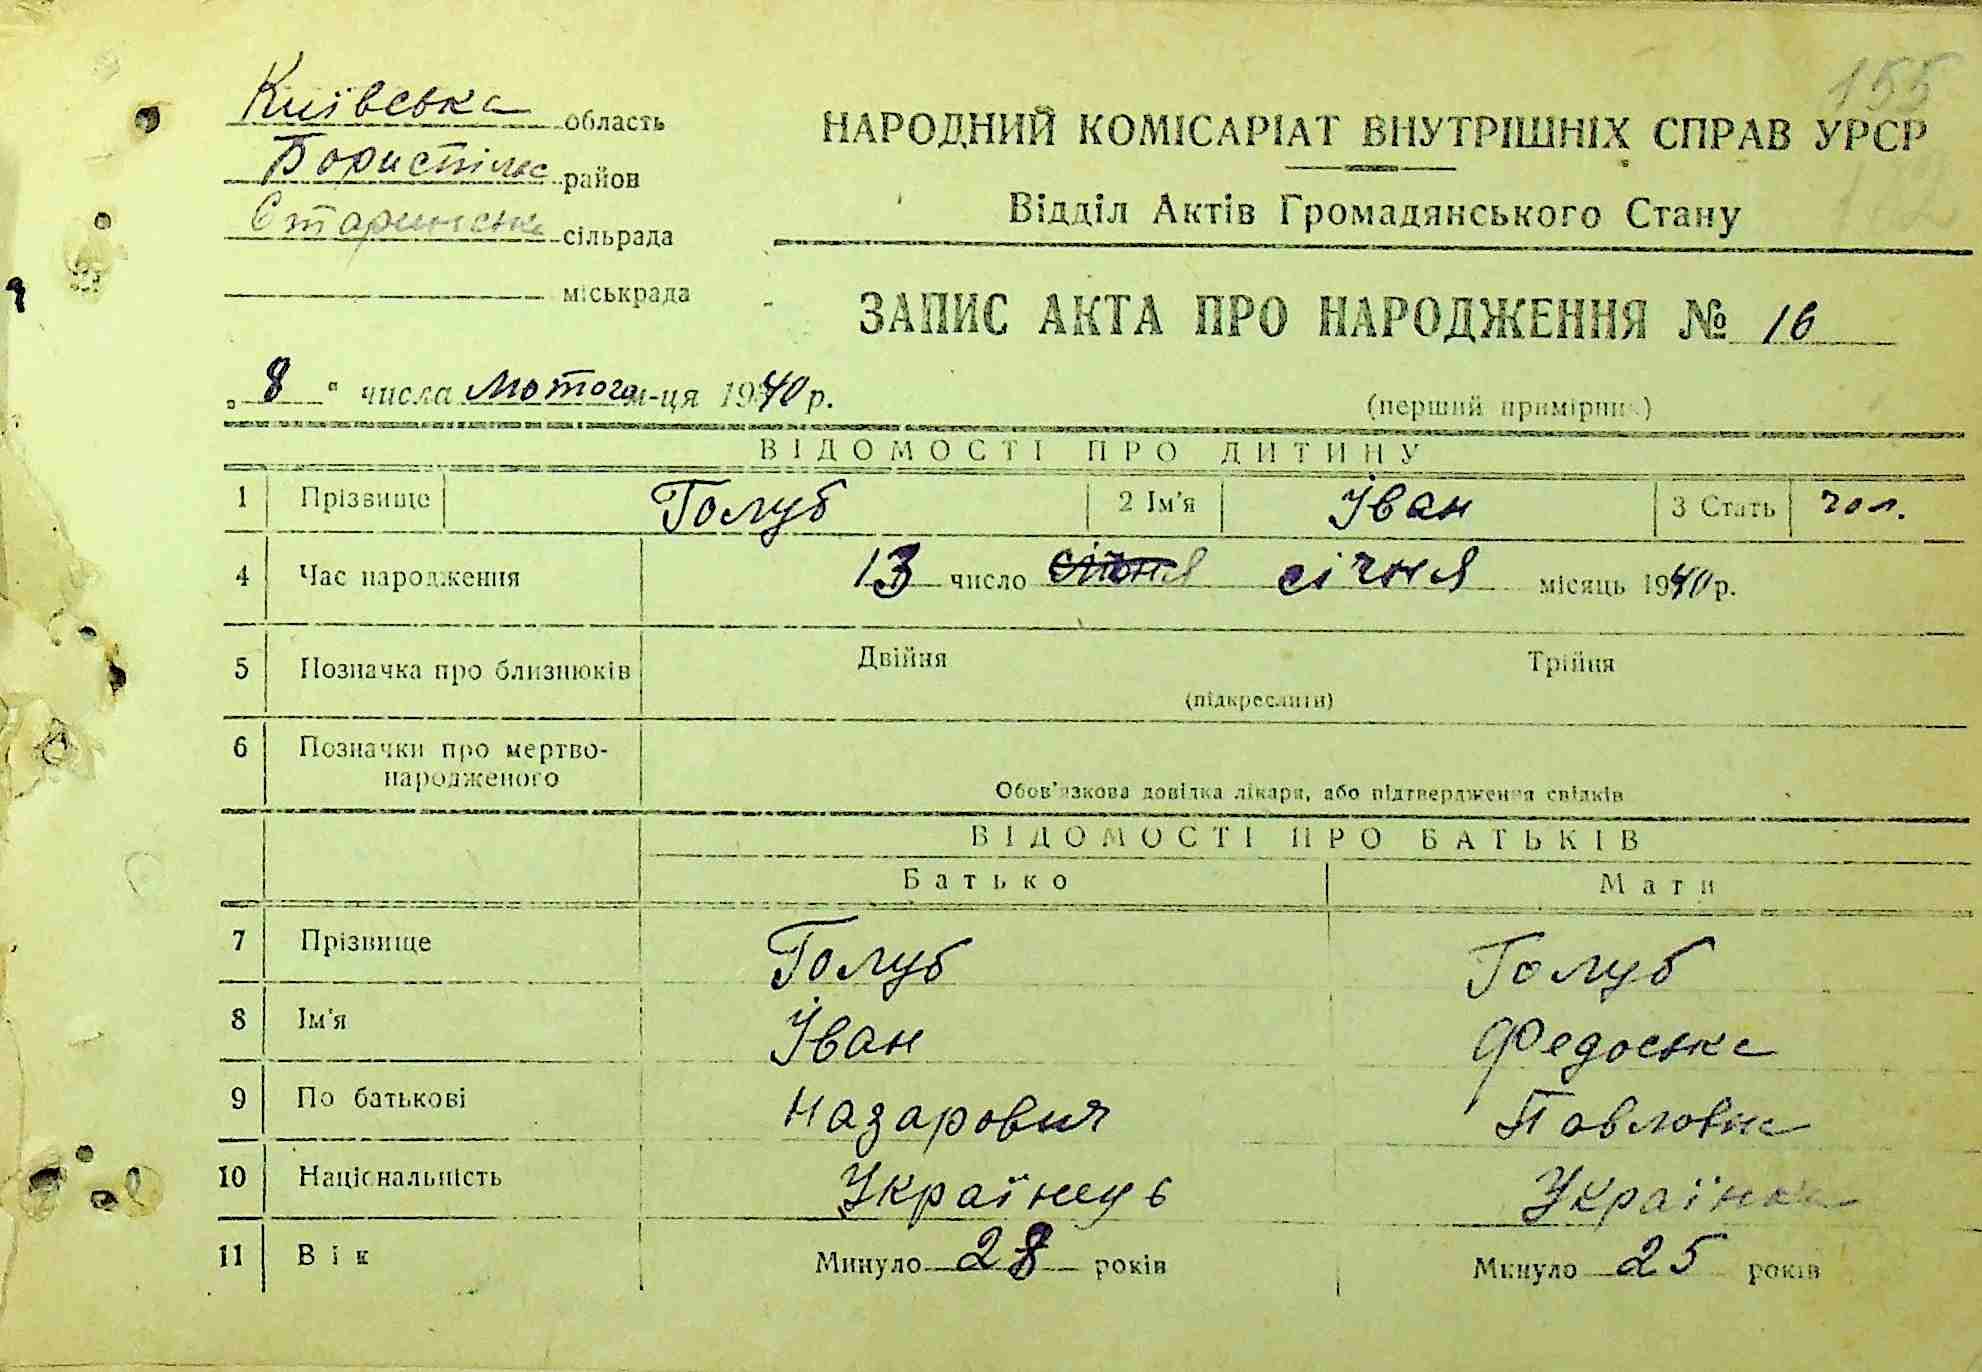 155
Київська область
НАРОДНИЙ КОМІСАРІАТ ВНУТРІШНІХ СПРАВ УРСР
Бориспільс район
Відділ Актів Громадянського Стану
Старинська сільрада
міськрада
ЗАПИС АКТА ПРО НАРОДЖЕННЯ № 16
„ 8 “ числа лютого м-ця 1940 р.
(перший примірник)
ВІДОМОСТІ ПРО ДИТИНУ
1 Прізвище Голуб 2 Ім'я Іван 3 Стать чол.
4 Час народження 13 число січня січня місяць 1940 р.
5 Позначка про близнюків Двійня Трійня
(підкреслити)
6 Позначки про мертво-
народженого
Обов'язкова довідка лікаря, або підтвердження свідків
ВІДОМОСТІ ПРО БАТЬКІВ
Батько Мати
7 Прізвище Голуб Голуб
8 Ім'я Іван Федоська
9 По батькові Назарович Павловна
10 Національність Українець Українка
11 Вік Минуло 28 років Минуло 25 років